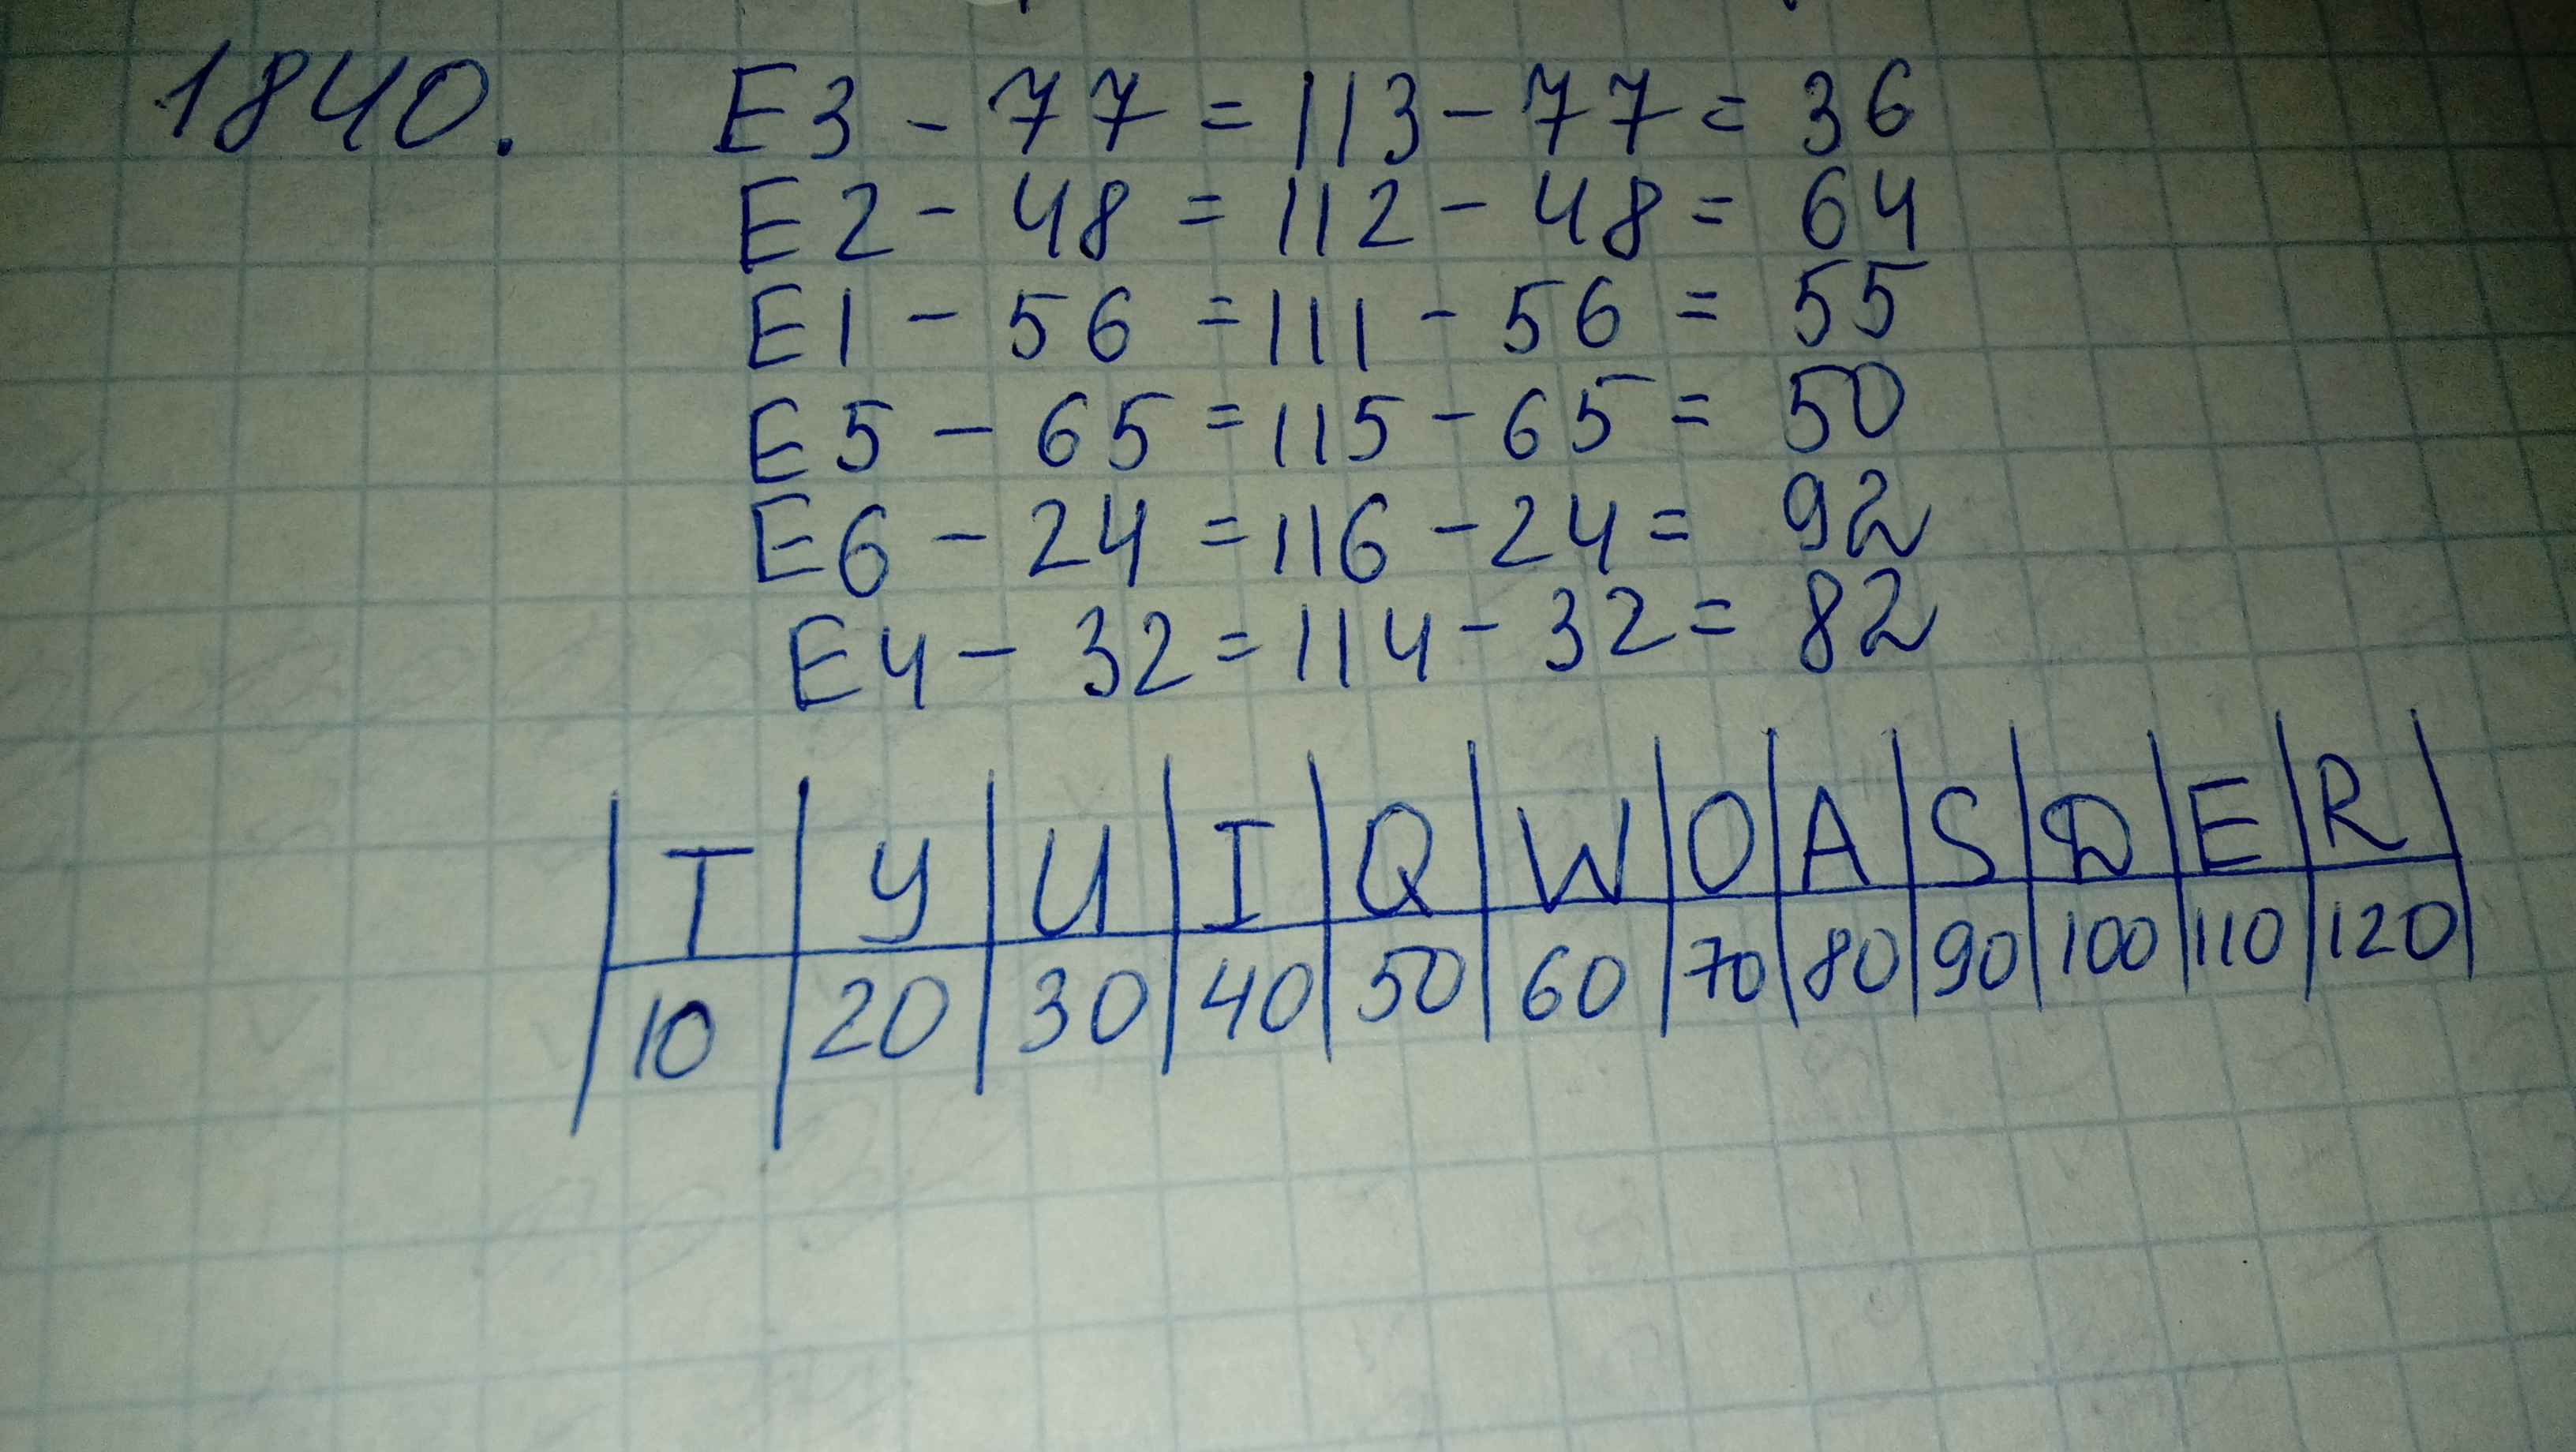 1840. E3 - 77 = 113 - 77 = 36
E2 - 48 = 112 - 48 = 64
E1 - 56 = 111 - 56 = 55
E5 - 65 = 115 - 65 = 50
E6 - 24 = 116 - 24 = 92
E4 - 32 = 114 - 32 = 82
T | Y | U | I | Q | W | O | A | S | D | E | R
10 | 20 | 30 | 40 | 50 | 60 | 70 | 80 | 90 | 100 | 110 | 120